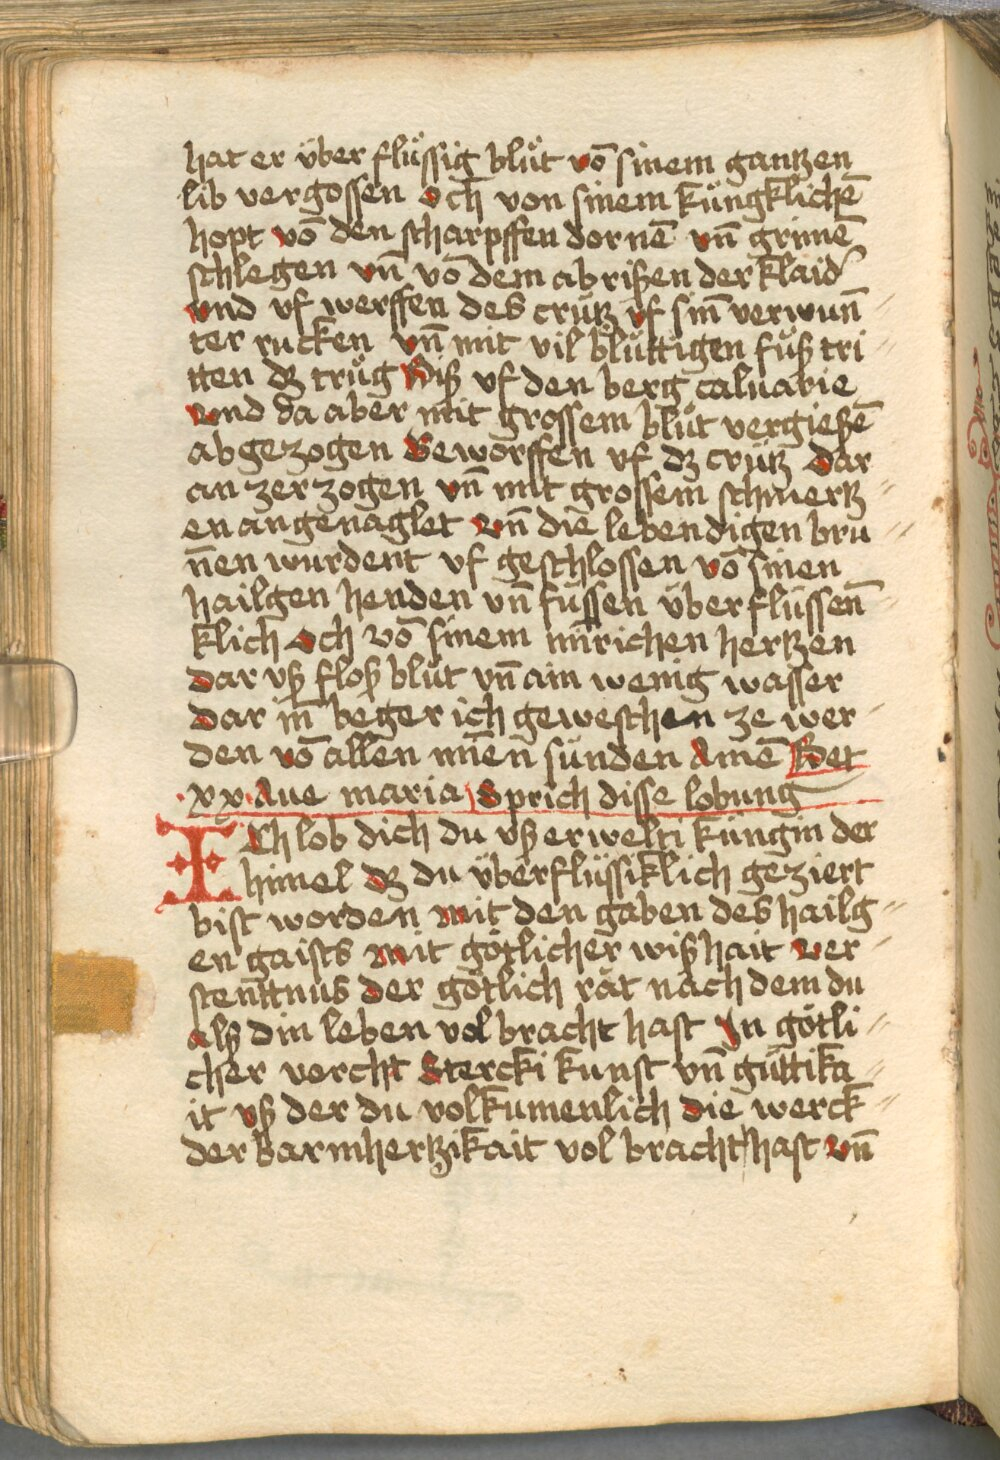 hat er über flüssig blůt vō sinem gantzen
lib vergossen Och von sinem küngklichē
hopt vō den scharpffen dornē vn̄ grimē
schlegen vn̄ vō dem abrißen der klaid
und vf werffen des crütz vf sin̄ verwun̄
ter rucken vn̄ mit vil blůttigen fůß tri
tten dz trůg Biß vf den berg caluarie
Vnd da aber mit grossem blůt vergießē
abgezogen Geworffen vf dz crütz Dar
an zerzogen vn̄ mit grossem schmertz
en angenaglet Vn̄ die lebendigen bru
n̄en wurdent vf geschlossen vō sinen
hailgen henden vn̄ fůssen überflüssen̄
klich Och vō sinem mīrichen hertzen
Dar vß floß blůt vn̄ ain wenig wasser
Dar in̄ beger ich geweschen ze wer
den vō allen mīen̄ sünden Amē Bet
xx Aue maria Sprich disse lobung
ICh lob dich du vß erwelti küngin der
himel dz du überflüssiklich geziert
bist worden mit den gaben des hailg
en gaists mit götlicher wißhait ver
sten̄ttnus der götlich rät nāch dem du
alß din leben vol bracht hast In götli
cher vorcht Stercki kunst vn̄ gůttika
it vß der du volkumenlich die werck
der Barmhertzikait vol bracht hast vn̄